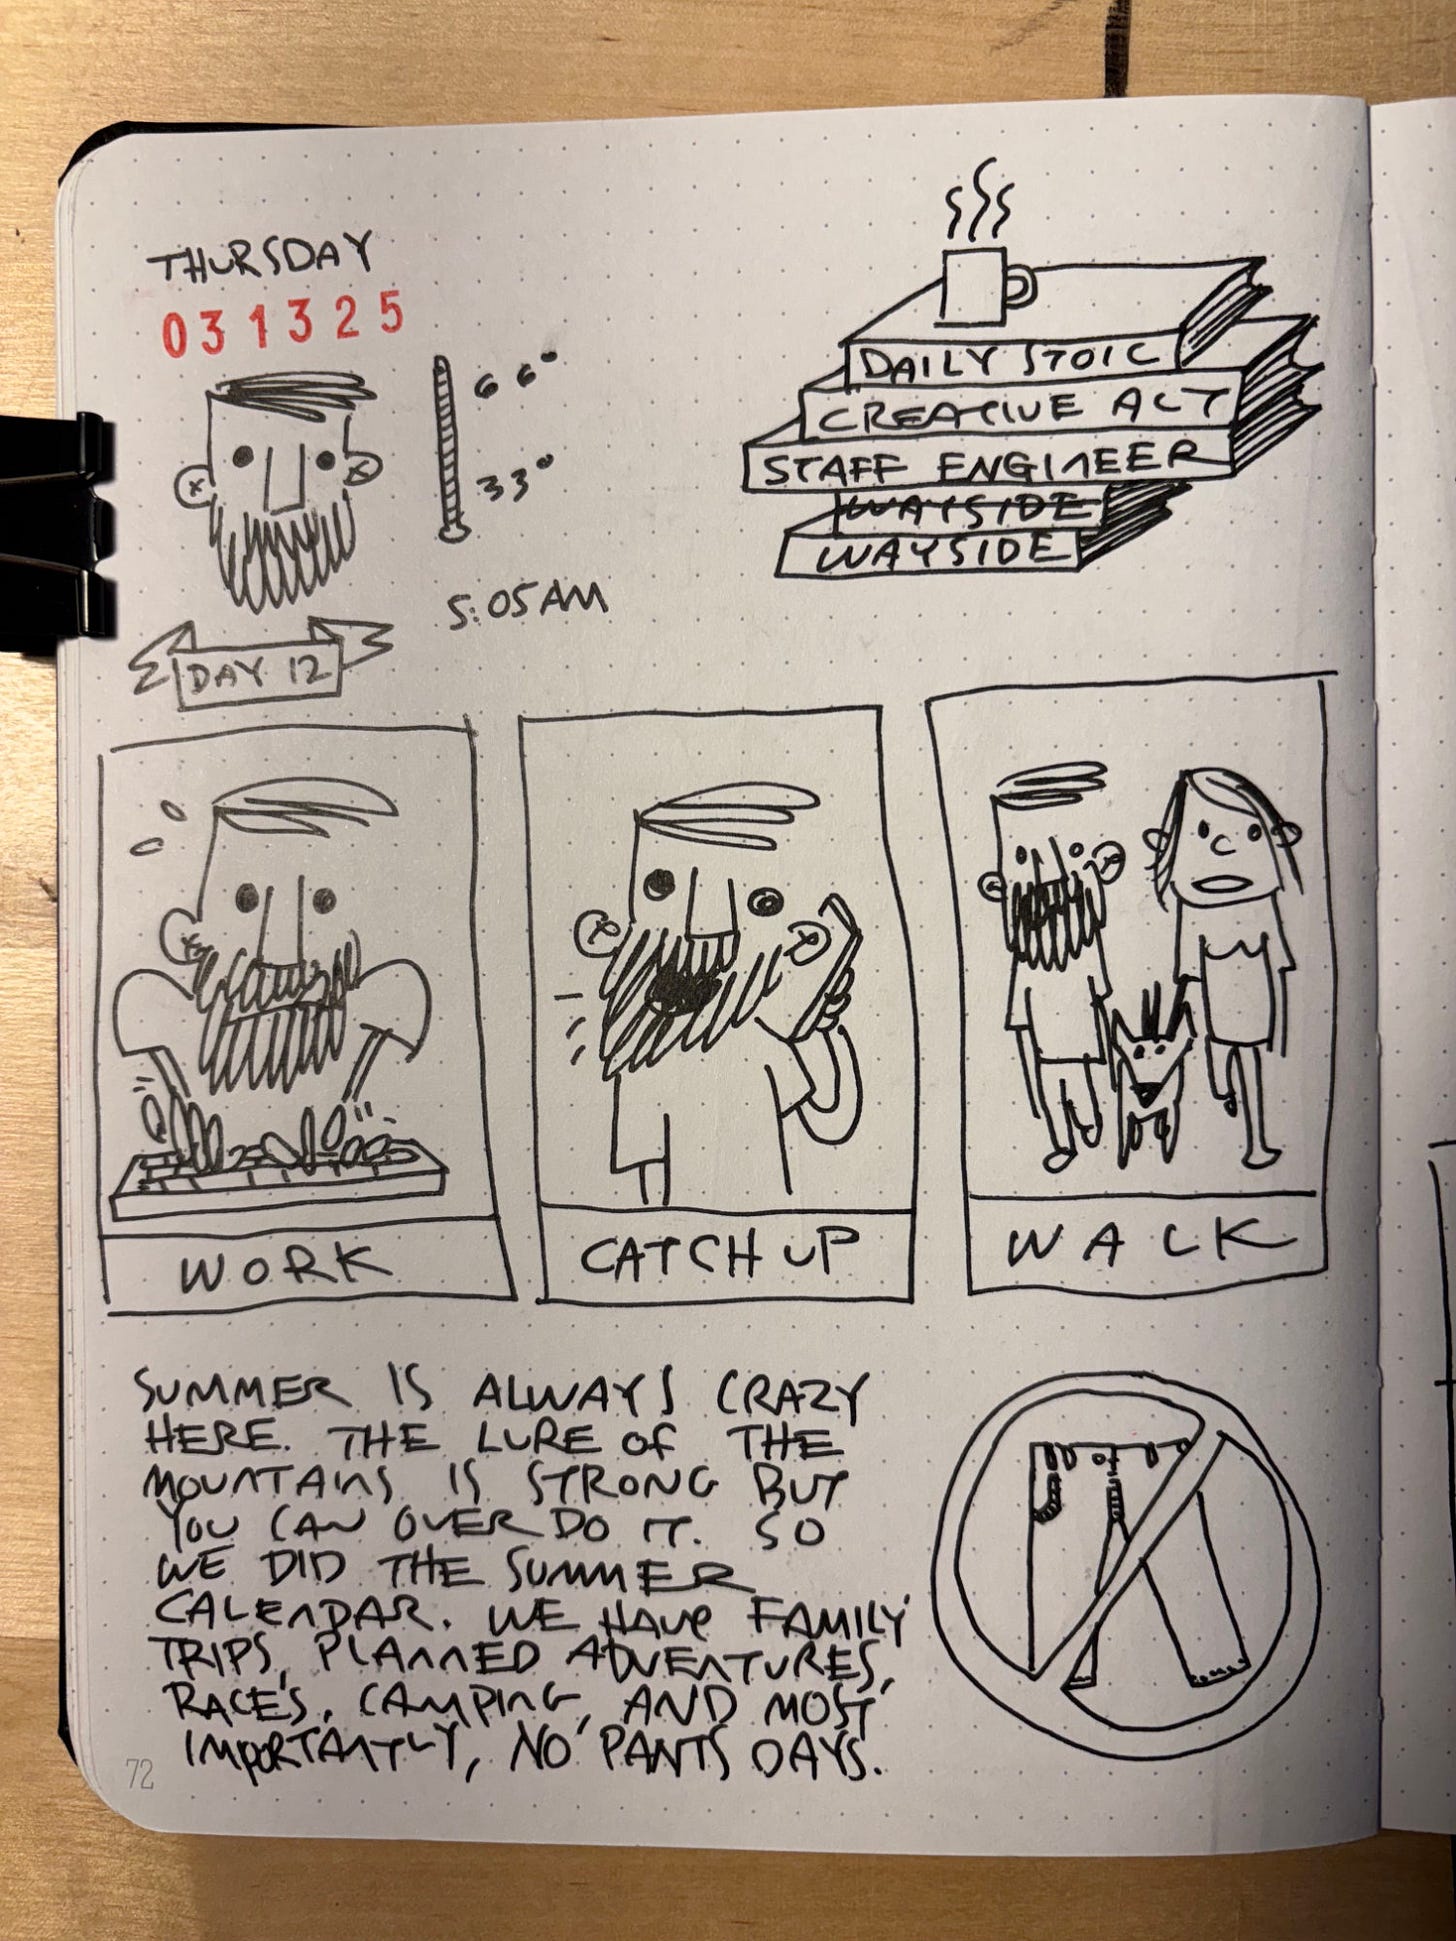 THURSDAY
031325
66°
33°
5:05AM
DAY 12
DAILY STOIC
CREATIVE ACT
STAFF ENGINEER
WAYSIDE
WAYSIDE
WORK
CATCH UP
WALK
SUMMER IS ALWAYS CRAZY
HERE. THE LURE OF THE
MOUNTAINS IS STRONG BUT
YOU CAN OVER DO IT. SO
WE DID THE SUMMER
CALENDAR. WE HAVE FAMILY
TRIPS, PLANNED ADVENTURES,
RACE'S, CAMPING, AND MOST
IMPORTANTLY, NO PANTS DAYS.
72